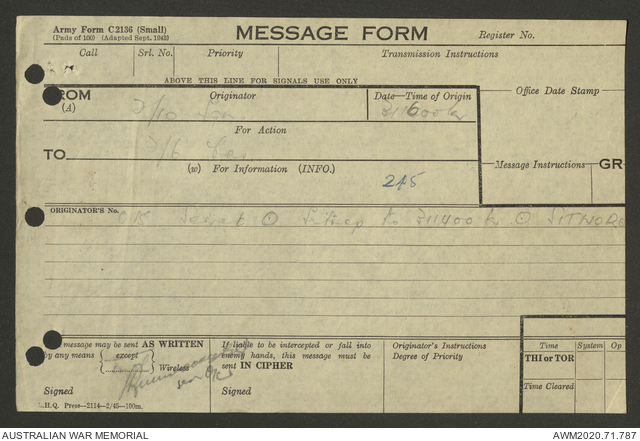 Army Form C2136 (Small)
(Pads of 100) (Adapted Sept. 1943)
MESSAGE FORM
Register No.
Call Srl. No. Priority Transmission Instructions
ABOVE THIS LINE FOR SIGNALS USE ONLY
FROM Originator Date—Time of Origin
(A)
Office Date Stamp—
For Action
TO
(w) For Information (INFO.)
Message Instructions— GR
245
ORIGINATOR'S No.
Secret Sitrep to 311400 k
message may be sent AS WRITTEN
by any means except Wireless
Signed
If liable to be intercepted or fall into
enemy hands, this message must be
sent IN CIPHER
Signed
Originator's Instructions
Degree of Priority
Time System Op
THI or TOR
Time Cleared
H.Q. Press—2114—2/45—100m.
AUSTRALIAN WAR MEMORIAL
AWM2020.71.787